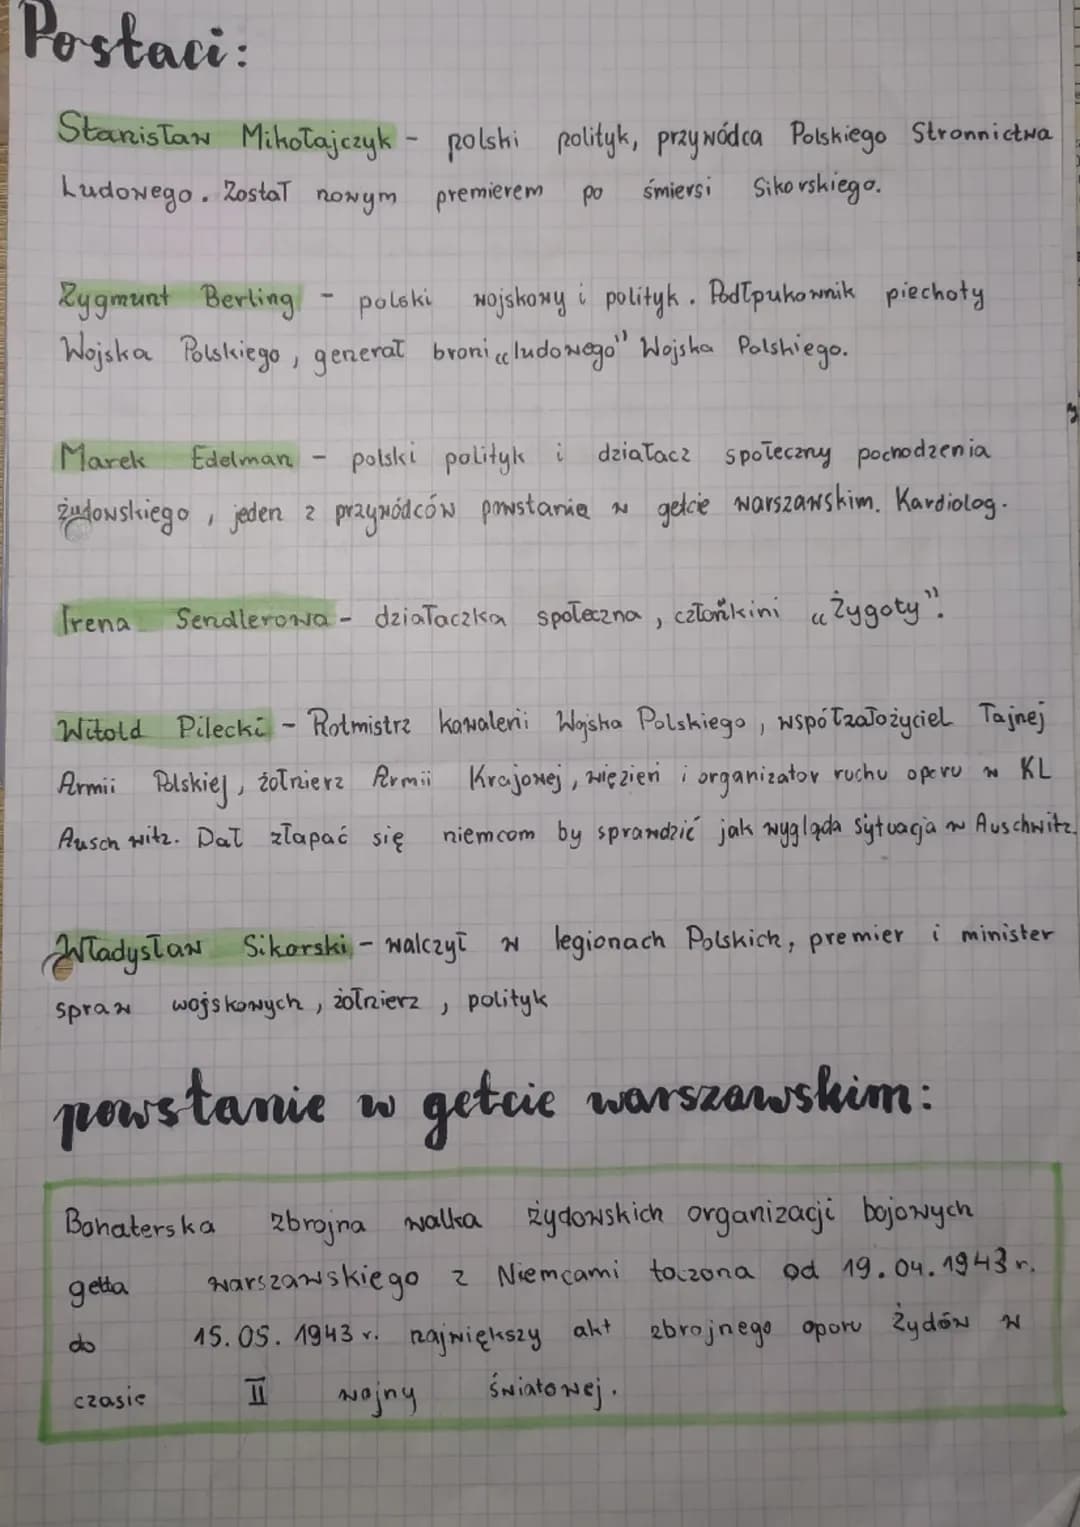 Postaci:
Stanisław Mikołajczyk - polski polityk, przywódca Polskiego Stronnictwa
Ludowego. Został nowym premierem po śmiersi Sikorskiego.
Zygmunt Berling - polski wojskowy i polityk. Podłpukownik piechoty
Wojska Polskiego, generał broni „ludowego" Wojska Polskiego.
Marek Edelman - polski polityk i działacz społeczny pochodzenia
żydowskiego, jeden z przywódców powstania w getcie warszawskim. Kardiolog.
Irena Sendlerowa - działaczka społeczna, członkini „Żygoty".
Witold Pilecki - Rotmistrz kawalerii Wojska Polskiego, współzałożyciel Tajnej
Armii Polskiej, żołnierz Armii Krajowej, więzień i organizator ruchu oporu w KL
Auschwitz. Dał złapać się niemcom by sprawdzić jak wygląda sytuacja w Auschwitz.
Władysław Sikorski - walczył w legionach Polskich, premier i minister
spraw wojskowych, żołnierz, polityk
powstanie w getcie warszawskim:
Bohaterska zbrojna walka żydowskich organizacji bojowych
getta warszawskiego z Niemcami toczona od 19.04.1943 r.
do 15.05.1943 r. największy akt zbrojnego oporu Żydów w
czasie II wojny światowej.